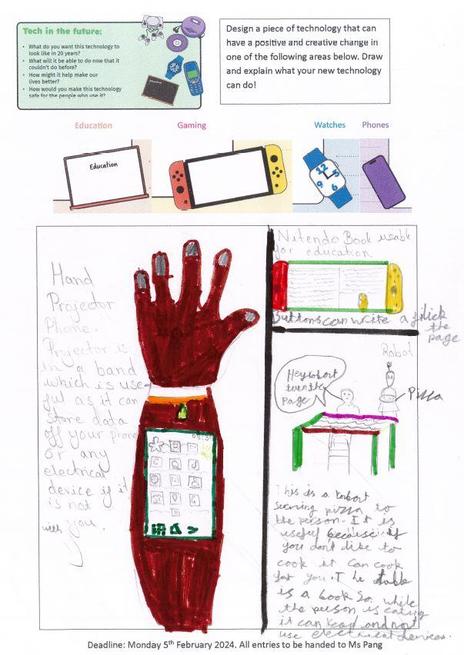 Tech in the future:
• What do you want this technology to look like in 20 years?
• What will it be able to do now that it couldn't do before?
• How might it help make our lives better?
• How would you make this technology safe for the people who use it?
Design a piece of technology that can
have a positive and creative change in
one of the following areas below. Draw
and explain what your new technology
can do!
Education
Gaming
Watches
Phones
Education
12
3
6
9
Hand
Projector
Phone.
Projector is
in a band
which is use-
ful as it can
store data
off your phone
or any
electrical
device if it
is not
with you.
Nintendo Book usable
for education
Buttons can write a flick
the
page
Robot
Hey robot
turn the
page
Pizza
This is a robort
serving pizza to
the person. It is
useful because if
you dont like to
cook it can cook
for you. The table
is a book so while
the person is eating
it can read and not
use electrical devices.
Deadline: Monday 5th February 2024. All entries to be handed to Ms Pang